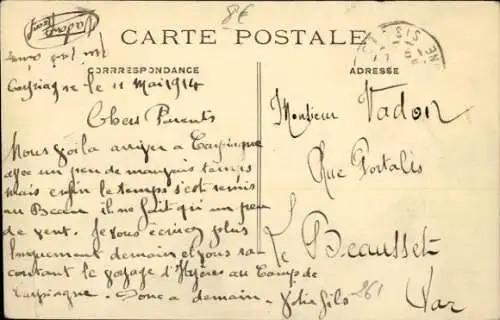 Vadon
8€
CARTE POSTALE
CORRRESPONDANCE
ADRESSE
Carpiagne le 11 Mai 1914
Chers Parents
Nous voila arriver a Carpiagne
avec un peu de mauvais temps
mais enfin le temps s'est remis
au Beau il ne fait qu'un peu
de vent. Je vous écrirai plus
longuement demain et vous ra-
contant le voyage d'Hyères au Camp de
Carpiagne. Donc a demain. Votre fils
861
Monsieur Vadon
Rue Portalis
Le Beausset
Var